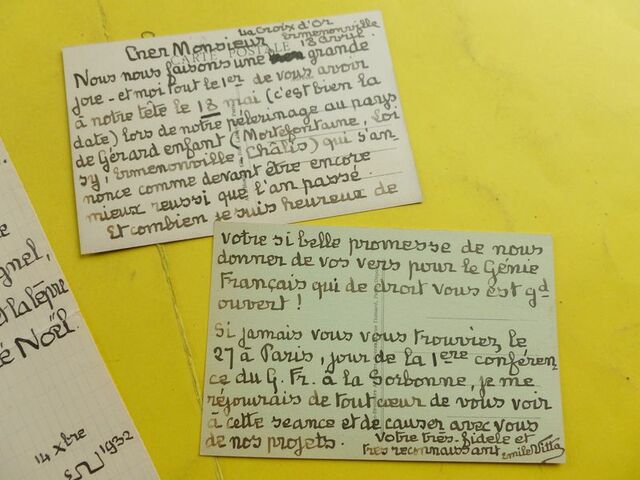 La Croix d'Or
Ermenonville
18 avril.
Cher Monsieur
CARTE POSTALE
Nous nous faisons une grande
joie - et moi tout le 1er de vous avoir
à notre tête le 18 mai (c'est bien la
date) lors de notre pèlerinage au pays
de Gérard enfant (Mortefontaine, Loi
sy, Ermenonville, Châlis) qui s'an-
nonce comme devant être encore
mieux reussi que l'an passé.
Et combien je suis heureux de
votre si belle promesse de nous
donner de vos vers pour le Génie
Français qui de droit vous est gd
ouvert !
Si jamais vous vous trouviez le
27 à Paris, jour de la 1ere conféren
ce du G. Fr. à la Sorbonne, je me
réjouirais de tout cœur de vous voir
à cette seance et de causer avec vous
de nos projets.
Votre très-fidele et
très reconnaissant Emile Vitta
e
gnel,
é Noël.
14 Xbre
1932